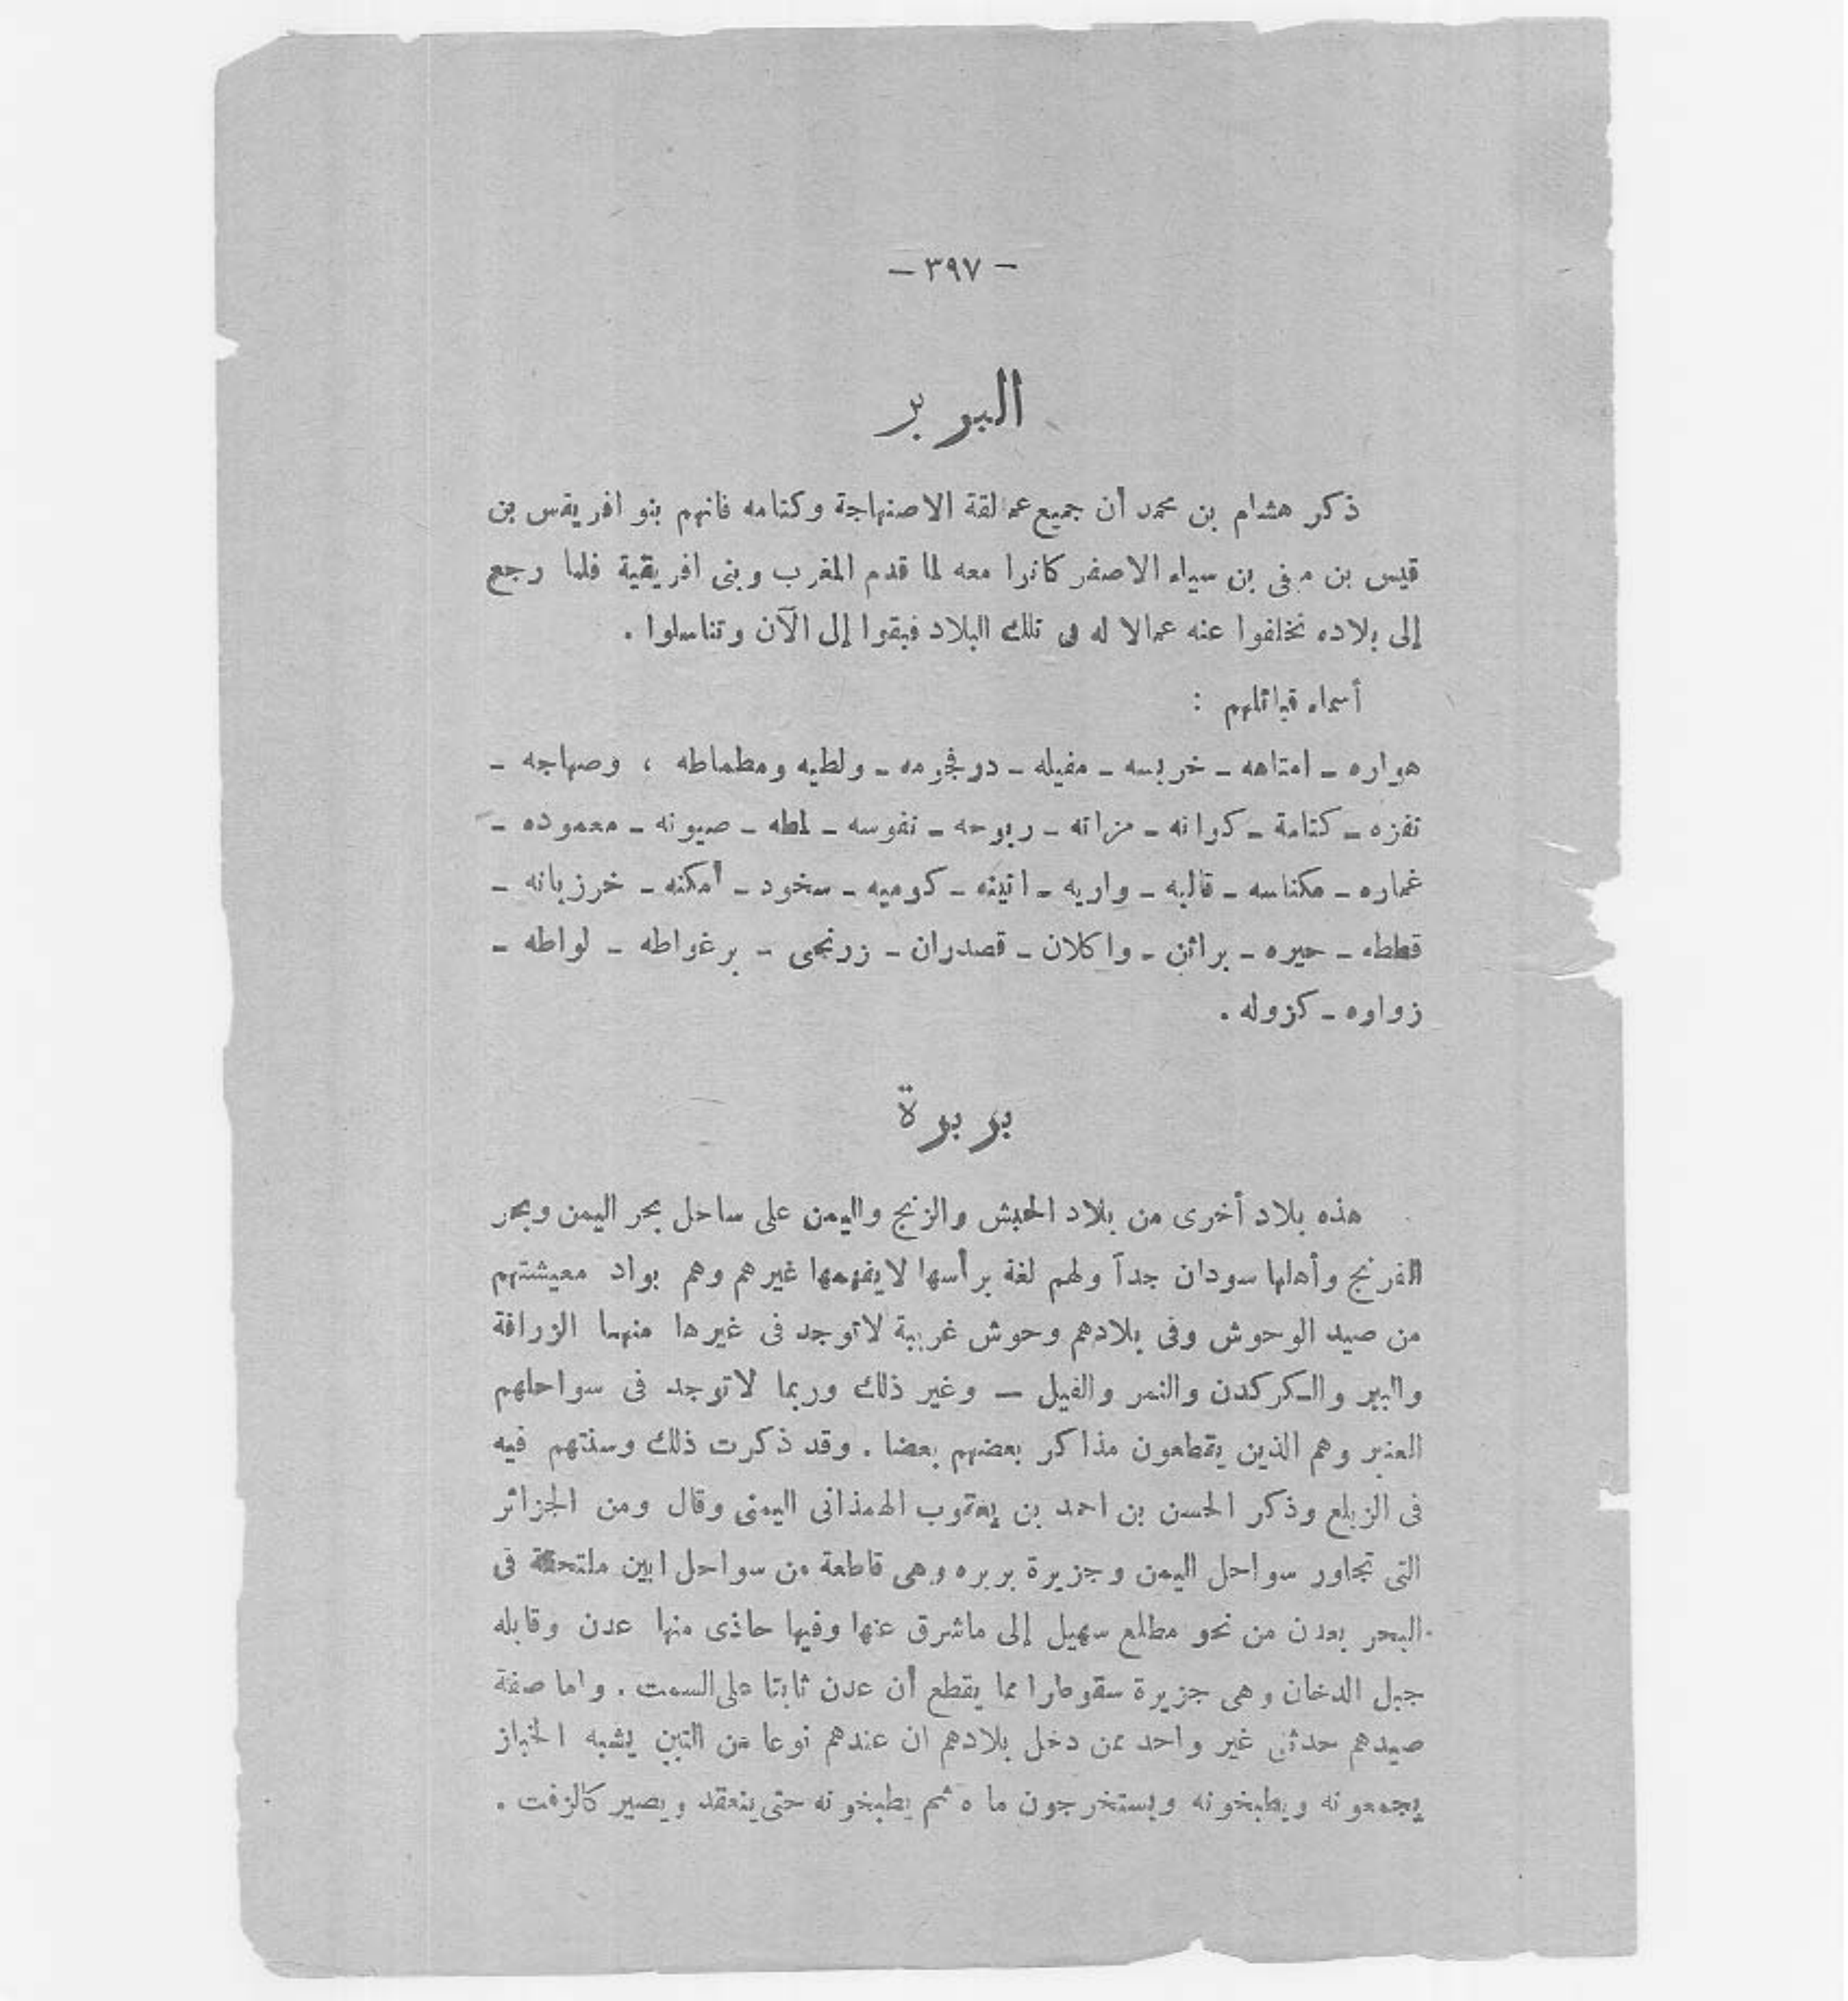 — ٣٩٧ —
البربر
ذكر هشام بن محمد أن جميع عمالقة الاصنهاجة وكتامه فانهم بنو افريقس بن
قيس بن صفى بن سباء الاصغر كانوا معه لما قدم المغرب وبنى افريقية فلما رجع
إلى بلاده تخلفوا عنه عمالا له فى تلك البلاد فبقوا إلى الآن وتناسلوا .
أسماء قبائلهم :
هواره ـ امتاهه ـ خريسه ـ مغيله ـ درفجومه ـ ولطيه ومطماطه ، وصهاجه ـ
نفزه ـ كتامة ـ كوانه ـ مزاته ـ ربوحه ـ نفوسه ـ لمطه ـ صيونه ـ معموده ـ
غماره ـ مكناسه ـ قالبه ـ واريه ـ اتينه ـ كوميه ـ سخود ـ أمكنه ـ خرزبانه ـ
قططه ـ حيره ـ براثن ـ واكلان ـ قصدران ـ زرنجى ـ برغواطه ـ لواطه ـ
زواوه ـ كزوله .
بربرة
هذه بلاد أخرى من بلاد الحبش والزنج واليمن على ساحل بحر اليمن وبحر
الفرنج وأهلها سودان جداً ولهم لغة برأسها لايفهمها غيرهم وهم بواد معيشتهم
من صيد الوحوش وفى بلادهم وحوش غريبة لاتوجد فى غيرها منها الزرافة
والببر والكركدن والنمر والفيل — وغير ذلك وربما لاتوجد فى سواحلهم
العنبر وهم الذين يقطعون مذاكر بعضهم بعضا . وقد ذكرت ذلك وسنتهم فيه
فى الزيلع وذكر الحسن بن احمد بن يعقوب الهمذانى اليمنى وقال ومن الجزائر
التى تجاور سواحل اليمن وجزيرة بربره وهى قاطعة من سواحل ابين ملتحقة فى
البحر بعدن من نحو مطلع سهيل إلى ماشرق عنها وفيها حاذى منها عدن وقابله
جبل الدخان وهى جزيرة سقوطرا مما يقطع أن عدن ثابتا على السمت . واما صفة
صيدهم حدثنى غير واحد ممن دخل بلادهم ان عندهم نوعا من التبن يشبه الخباز
يجمعونه ويطبخونه ويستخرجون ماه ثم يطبخونه حتى ينعقد ويصير كالزفت .